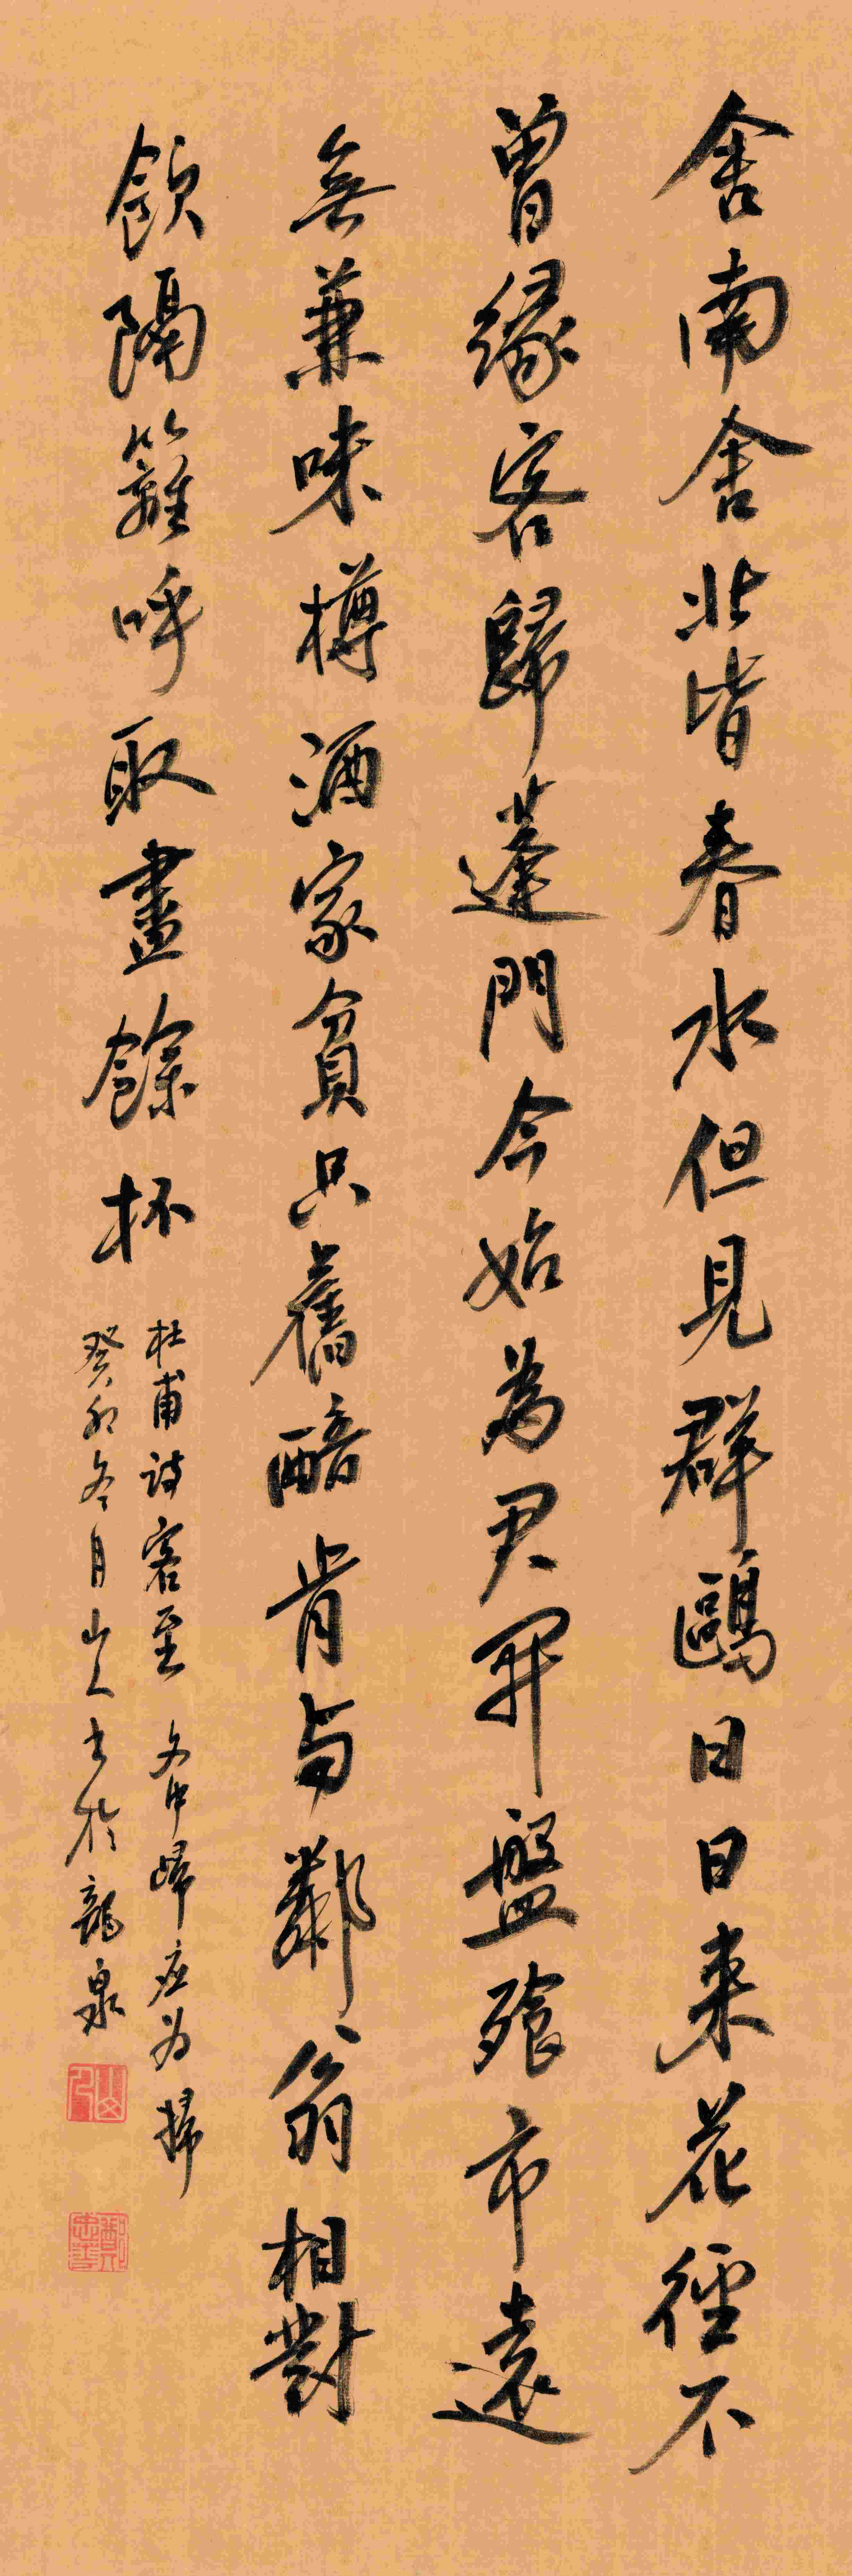 舍南舍北皆春水但見群鷗日日来花徑不
曾緣客歸蓬門今始為君開盤飱市遠
無兼味樽酒家貧只舊醅肯与鄰翁相對
飲隔籬呼取盡餘杯
杜甫詩客至 文中歸应为掃
癸卯冬月山人書於龍泉